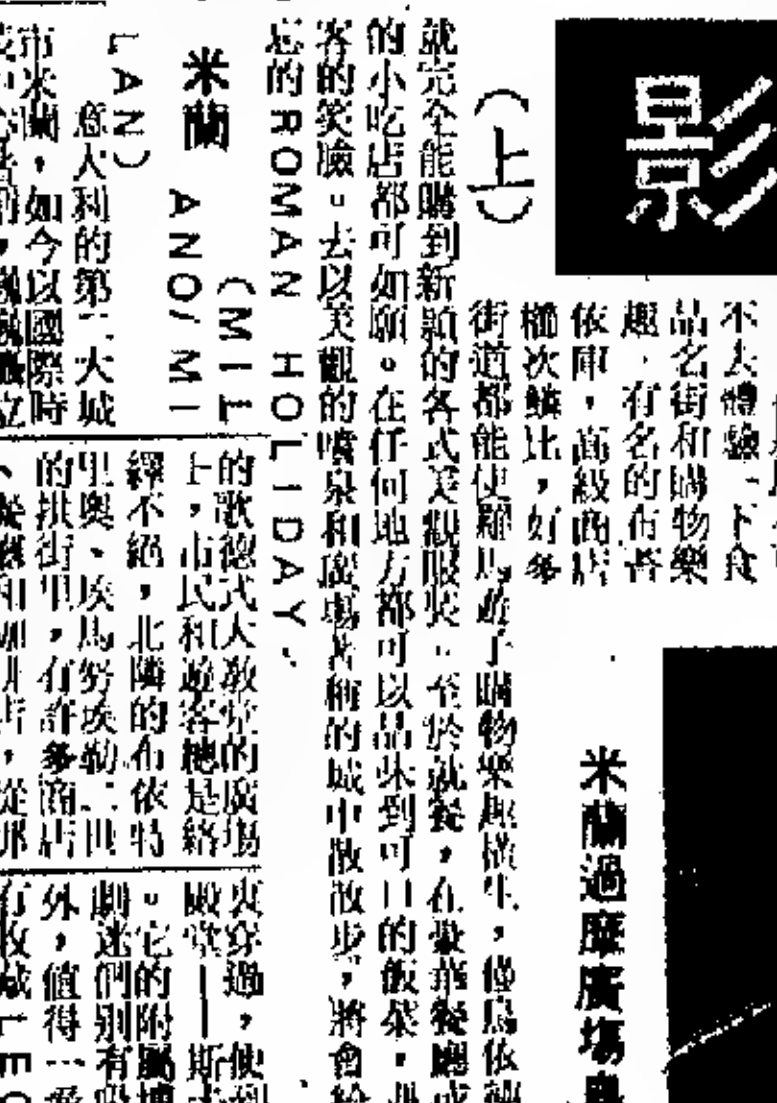 影
（上）
不去體驗一下食
品名街和購物樂
趣，有名的布
依庫，高級商店
櫛次鱗比，好多
街道都能使羅馬遊子購物樂趣橫生，僅烏依
就完全能購到新穎的各式美觀服裝。至於就餐，在豪華餐廳或
的小吃店都可如願。在任何地方都可以品味到可口的飯菜，
客的笑臉。去以美觀的噴泉和廣場著稱的城中散散步，將會給
忘的ROMAN HOLIDAY。
米蘭過廣場
米蘭 （MIL
ANO/MI
LAN）
意大利的第二大城
市米蘭，如今以國際時
的歌德式大教堂的廣場
上，市民和遊客總是絡
繹不絕，北隣的布依特
里奧、埃馬努埃勒二世
的拱街里，有許多商店
和咖啡店，從那
穿過，便到
殿堂——斯
。它的附屬博
劇迷們別有吸
外，值得一